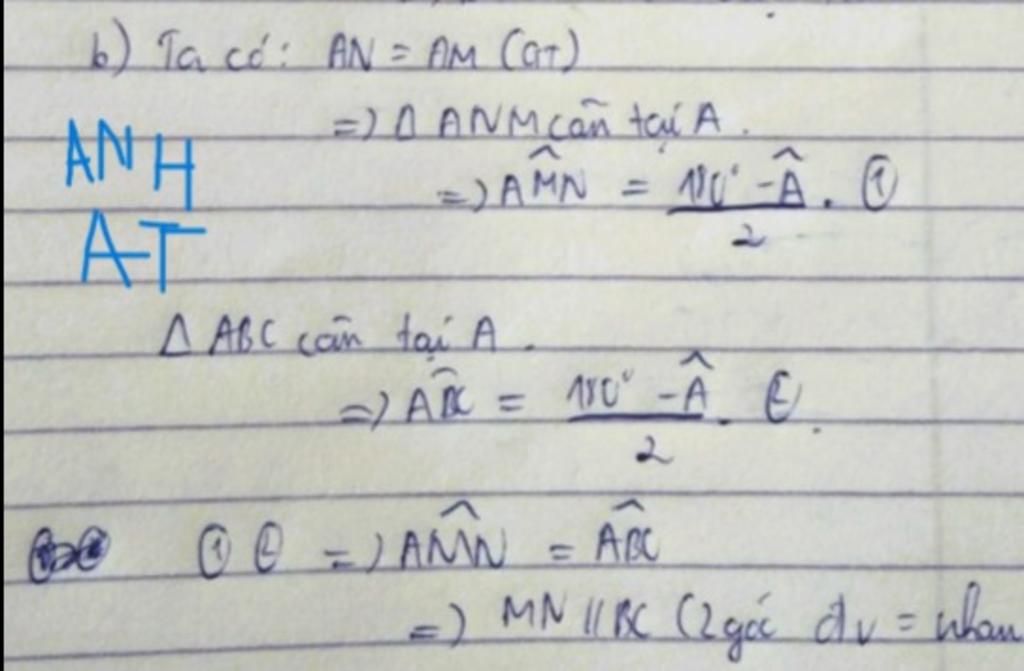 b) Ta có: AN = AM (GT)
=> Δ ANM cân tại A.
ANH
=> AM̂N = 180° - Â / 2 . ①
AT
Δ ABC cân tại A.
=> AB̂C = 180° - Â / 2 . ②
① ② => AM̂N = AB̂C
=> MN // BC (2 góc đv = nhau